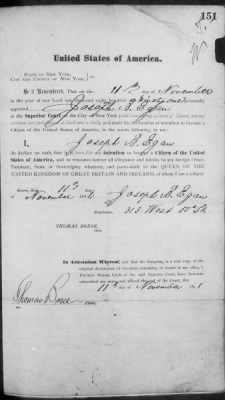 151
United States of America.
STATE OF NEW YORK,
CITY AND COUNTY OF NEW YORK, } ss.
Be it Remembered, That on the 11th day of November
in the year of our Lord one thousand eight hundred and ninety one personally
appeared Joseph B. Egan
in the Superior Court of the City of New York
and made his declaration of intention to become a
Citizen of the United States of America, in the words following, to wit:
I, Joseph B. Egan
do declare on oath, that it is bona fide my intention to become a Citizen of the United
States of America, and to renounce forever all allegiance and fidelity to any foreign Prince,
Potentate, State or Sovereignty whatever, and particularly to the QUEEN OF THE
UNITED KINGDOM OF GREAT BRITAIN AND IRELAND, of whom I am a subject
Sworn this 11th day of
November 1891
Joseph B. Egan
Residence, 313 West
THOMAS BOESE,
Clerk.
In Attestation Whereof, and that the foregoing is a true copy of the
original declaration of intention remaining of record in my office, I
Thomas Boese, Clerk of the said Superior Court, have hereunto
subscribed my name and affixed the seal of the Court, this
11th day of November 1
Thomas Boese